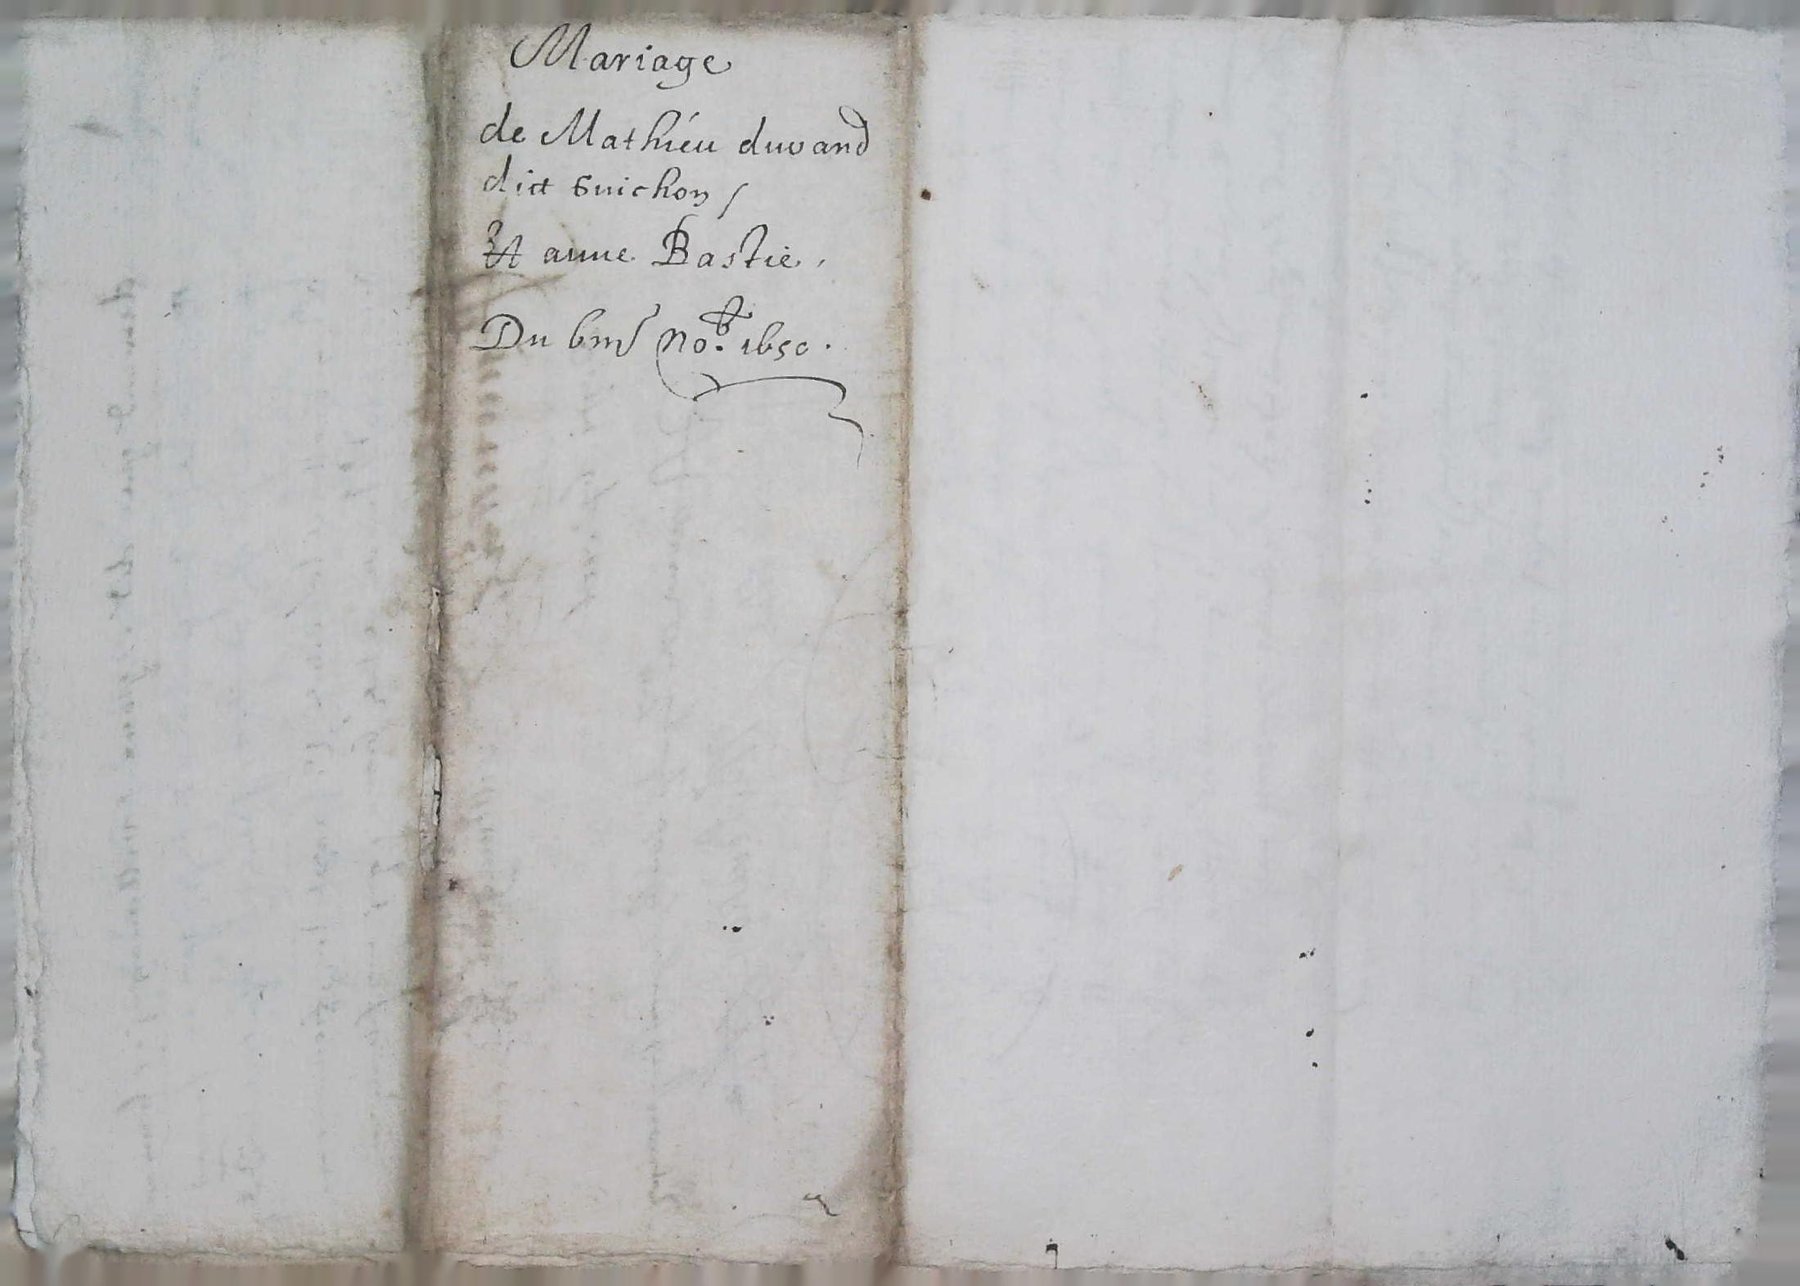 Mariage
de Mathieu durand
dict Guichon
Et anne Bastie.
Du bme nob.re 1650.